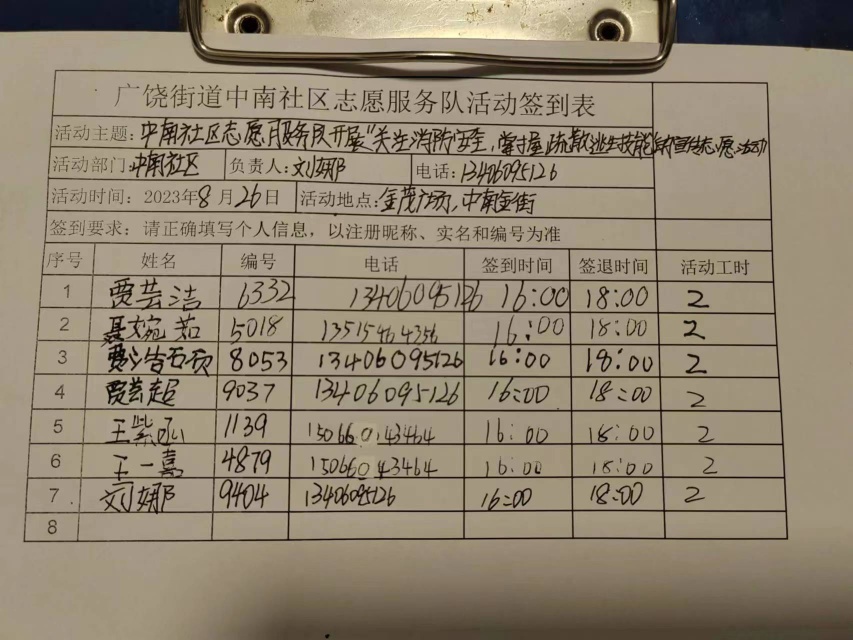 广饶街道中南社区志愿服务队活动签到表
活动主题：中南社区志愿服务队开展“关注消防安全，掌握疏散逃生技能”宣传志愿活动
活动部门：中南社区 负责人：刘娜 电话：13406095126
活动时间：2023年8月26日 活动地点：金茂广场，中南金街
签到要求：请正确填写个人信息，以注册昵称、实名和编号为准
序号 姓名 编号 电话 签到时间 签退时间 活动工时
1 贾芸洁 6332 13406095126 16:00 18:00 2
2 聂婉茹 5018 13515464356 16:00 18:00 2
3 贾浩硕 8053 13406095126 16:00 18:00 2
4 贾芸超 9037 13406095126 16:00 18:00 2
5 王紫函 1139 15066043464 16:00 18:00 2
6 王一嘉 4879 15066043464 16:00 18:00 2
7 刘娜 9404 13406095126 16:00 18:00 2
8